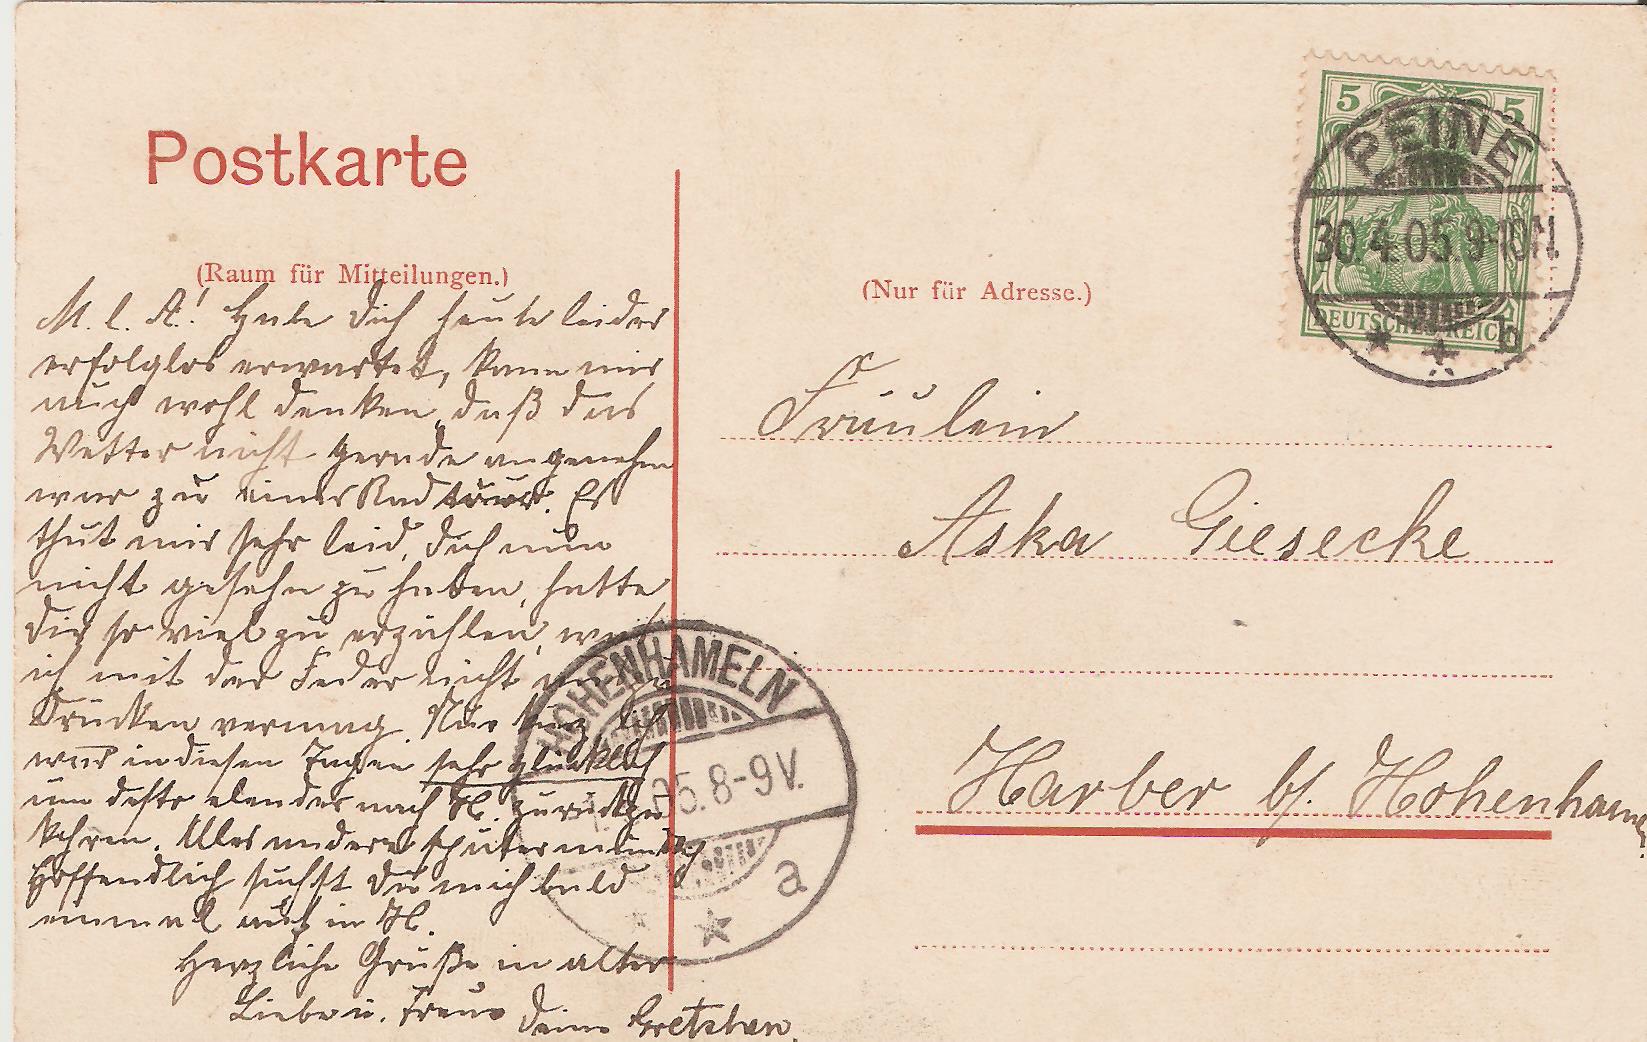 Postkarte
(Raum für Mitteilungen.)
M. l. A.! Habe Dich heute leider
erfolglos erwartet, kann mir
auch wohl denken, daß das
Wetter nicht gerade angenehm
war zu einer Radtour. Es
thut mir sehr leid, Dich nun
nicht gesehn zu haben, hatte
Dir so viel zu erzählen, was
ich mit der Feder nicht
drücken vermag. Nur kurz, ich
war in diesen Tagen sehr glücklich
um desto elender nach H. zurückzu
kehren. Alles andere später mündlich
Hoffendlich suchst Du mich bald
einmal auf in H.
Herzliche Grüße in alter
Liebe u. Treue Deine Gretchen.
(Nur für Adresse.)
Fräulein
Aska Giesecke
Harber b/. Hohenhameln.
5 5
DEUTSCHES REICH
PEINE
30.4.05.9-10N
b
HOHENHAMELN
05.8-9V.
a